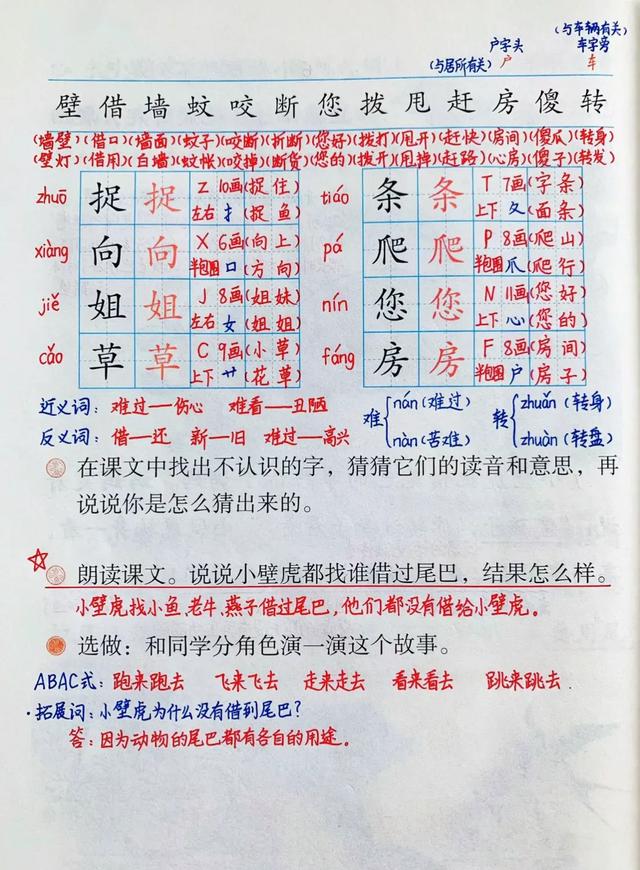 (与车辆有关)
户字头 车字旁
(与居所有关) 户 车
壁借墙蚊咬断您拨甩赶房傻转
(墙壁)(借口)(墙面)(蚊子)(咬断)(折断)(您好)(拨打)(甩开)(赶快)(房间)(傻瓜)(转身)
(壁灯)(借用)(白墙)(蚊帐)(咬掉)(断货)(您的)(拨开)(甩掉)(赶路)(心房)(傻子)(转发)
zhuō 捉 捉 Z 10画(捉住) tiáo 条 条 T 7画(字条)
左右 扌(捉鱼) 上下 夂(面条)
xiàng 向 向 X 6画(向上) pá 爬 爬 P 8画(爬山)
半包围 口(方向) 半包围 爪(爬行)
jiě 姐 姐 J 8画(姐妹) nín 您 您 N 11画(您好)
左右 女(姐姐) 上下 心(您的)
cǎo 草 草 C 9画(小草) fáng 房 房 F 8画(房间)
上下 艹(花草) 半包围 户(房子)
近义词：难过—伤心 难看—丑陋 难 nán(难过) 转 zhuǎn(转身)
反义词：借—还 新—旧 难过—高兴 nàn(苦难) zhuàn(转盘)
在课文中找出不认识的字，猜猜它们的读音和意思，再
说说你是怎么猜出来的。
朗读课文。说说小壁虎都找谁借过尾巴，结果怎么样。
小壁虎找小鱼、老牛、燕子借过尾巴，他们都没有借给小壁虎。
选做：和同学分角色演一演这个故事。
ABAC式：跑来跑去 飞来飞去 走来走去 看来看去 跳来跳去
·拓展词：小壁虎为什么没有借到尾巴？
答：因为动物的尾巴都有各自的用途。